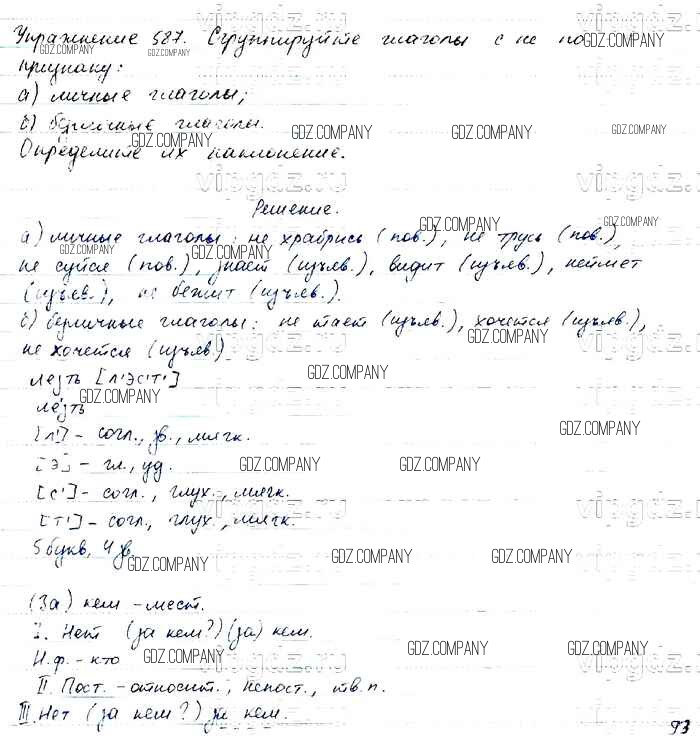 Упражнение 587. Сгруппируйте глаголы с не по
признаку:
а) личные глаголы;
б) безличные глаголы.
Определите их наклонение.
Решение.
а) личные глаголы: не храбрись (пов.), не трусь (пов.),
не суйся (пов.), знает (изъяв.), видит (изъяв.), неймет
(изъяв.), не бежит (изъяв.).
б) безличные глаголы: не тает (изъяв.), хочется (изъяв.),
не хочется (изъяв.)
лезть [л'эс'т']
лезть
[л'] - согл., зв., мягк.
[э] - гл., уд.
[с'] - согл., глух., мягк.
[т'] - согл., глух., мягк.
5 букв, 4 зв.
(За) кем - мест.
I. Нет (за кем?) (за) кем.
Н.ф. - кто
II. Пост. - относит., непост., тв.п.
III. Нет (за кем?) за кем.
93
GDZ.COMPANY
vipgdz.ru